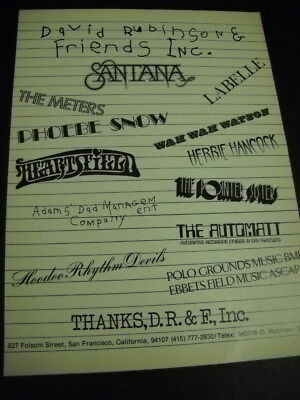 David Rubinson &
Friends Inc.
SANTANA
LABELLE
THE METERS
PHOEBE SNOW
WAH WAH WATSON
HERBIE HANCOCK
HEARTSFIELD
THE POINTER SISTERS
Adams' Dad Managem
ent
Company
THE AUTOMATT
AUTOMATED RECORDING STUDIOS IN SAN FRANCISCO
Hoodoo Rhythm Devils
POLO GROUNDS MUSIC-BMI
EBBETS FIELD MUSIC ASCAP
THANKS, D.R. & F., Inc.
827 Folsom Street, San Francisco, California, 94107 (415) 777-2930/Telex: